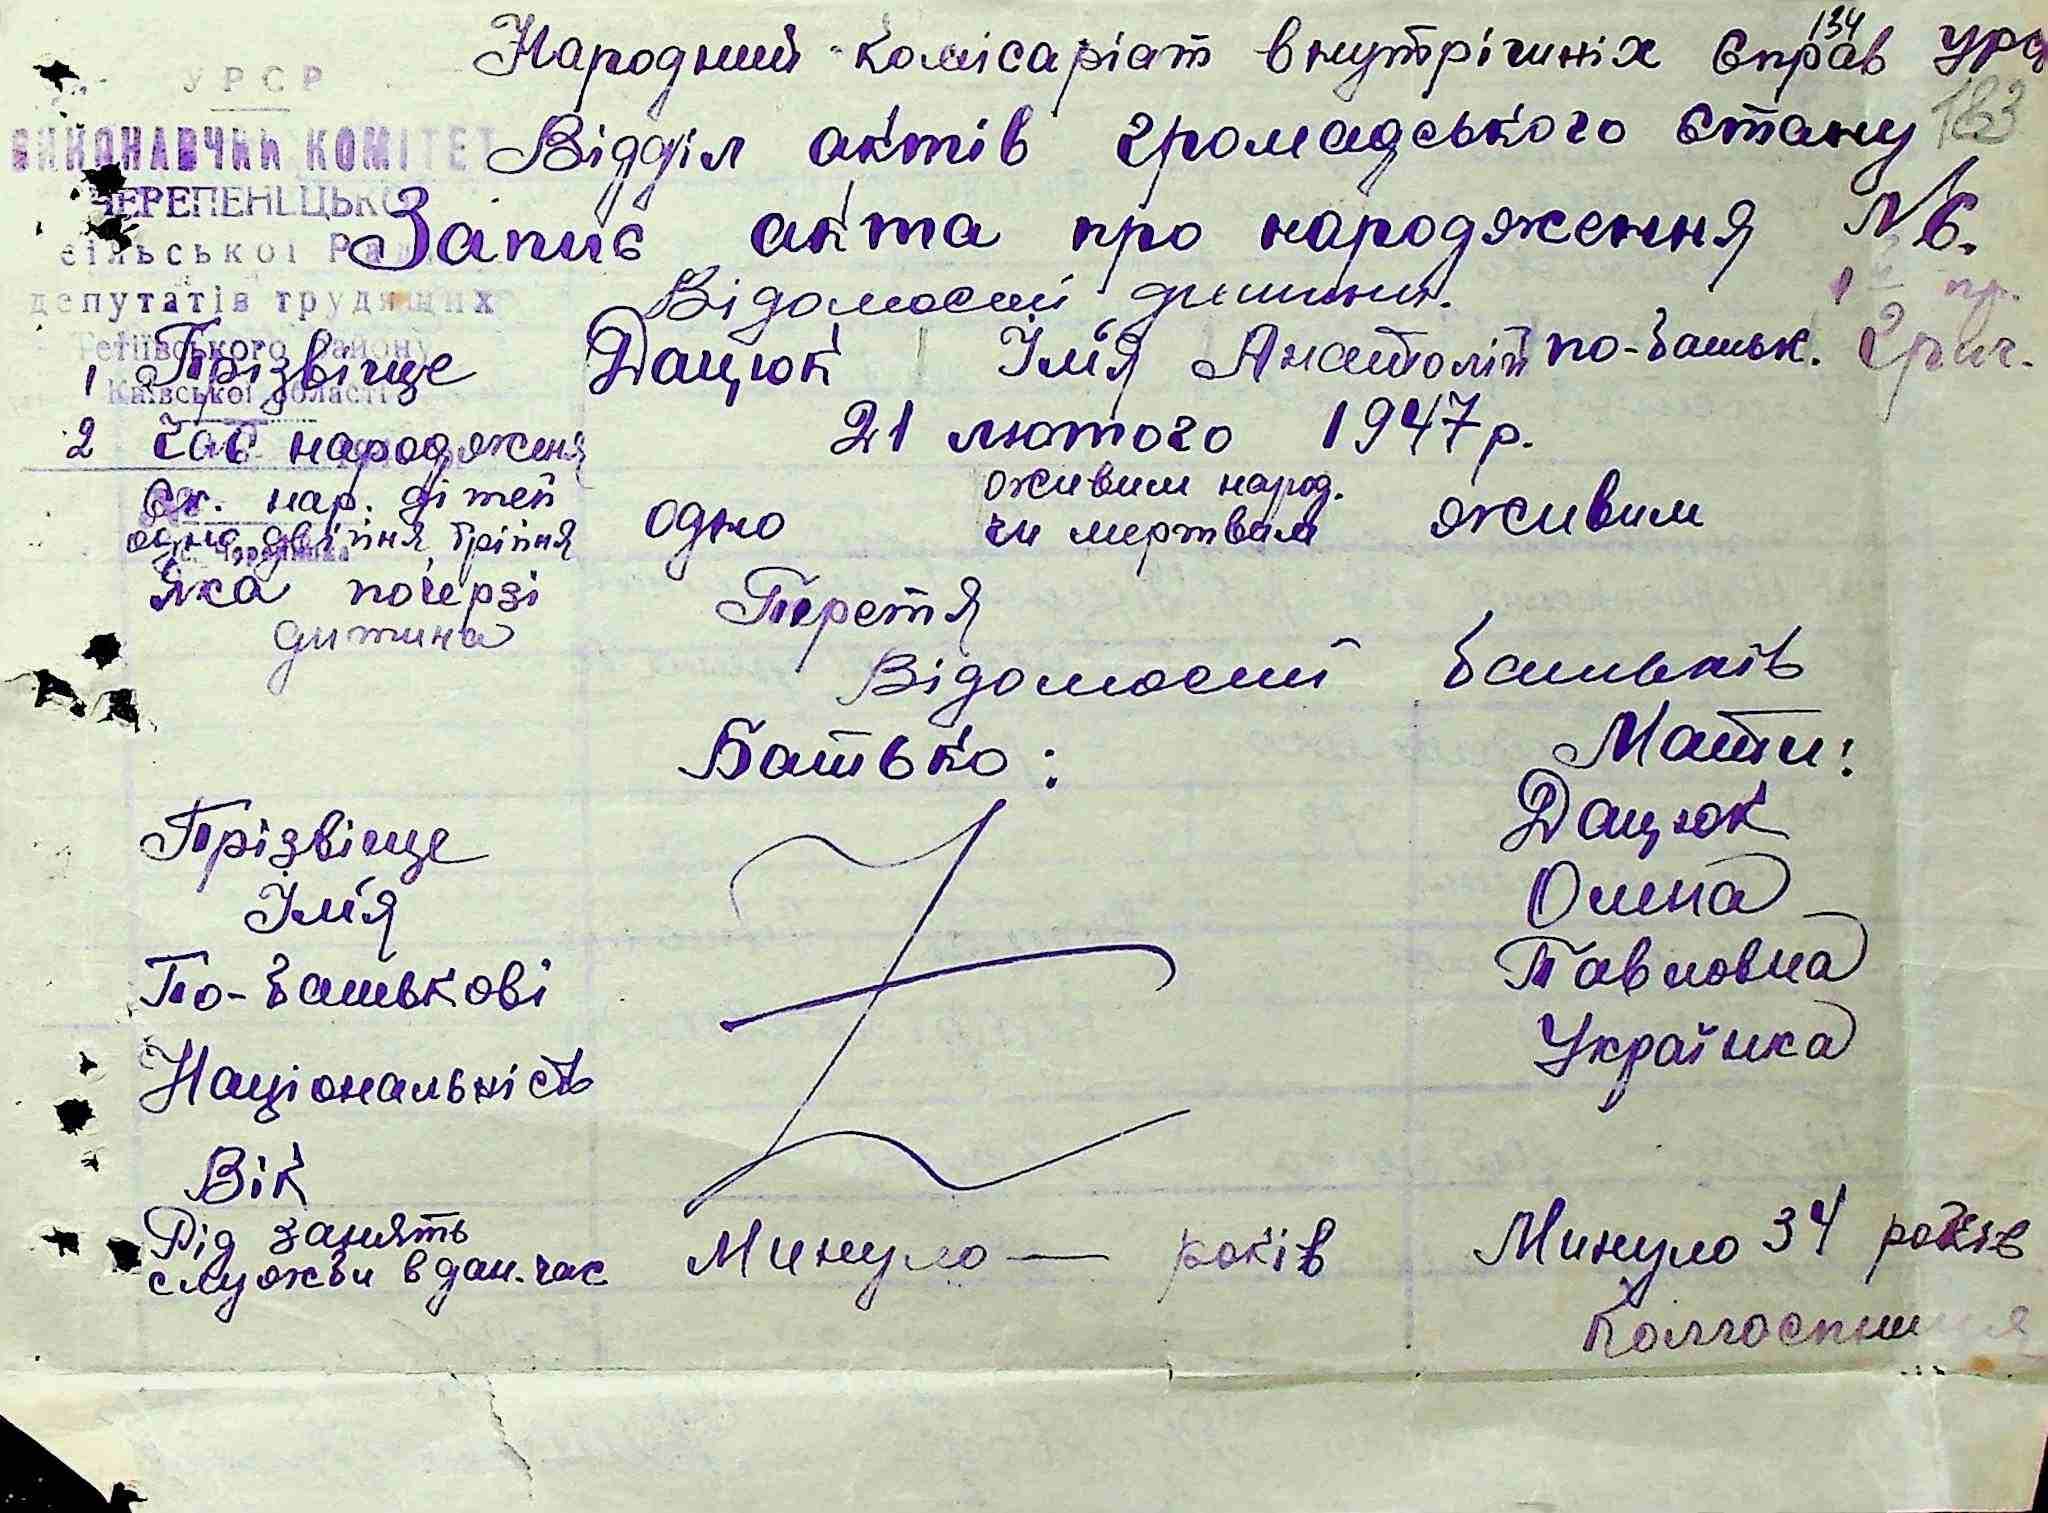 134
Народний комісаріат внутрішніх справ УРСР
183
УРСР
ВИКОНАВЧИЙ КОМІТЕТ
Відділ актів громадського стану
ЧЕРЕПЕНЕЦЬКО
Запис акта про народження №6.
сільської Рад
депутатів трудящих
Відомості дитини.
1 пр.
Тетіївського району
1 Прізвіще Дацюк Ім'я Анатолій по-батьк. Григ.
Київської області
2 Час народженя 21 лютого 1947 р.
Ск. нар. дітей
одно двійня трійня одно
живим народ.
чи мертвим живим
Яка почерзі
дитина Третя
Відомості батьків
Батько: Мати:
Прізвіще Дацюк
Ім'я Олена
По-батькові Павловна
Національність Українка
Вік Минуло — років Минуло 34 років
Рід занять
служби в дан. час Колгоспниця